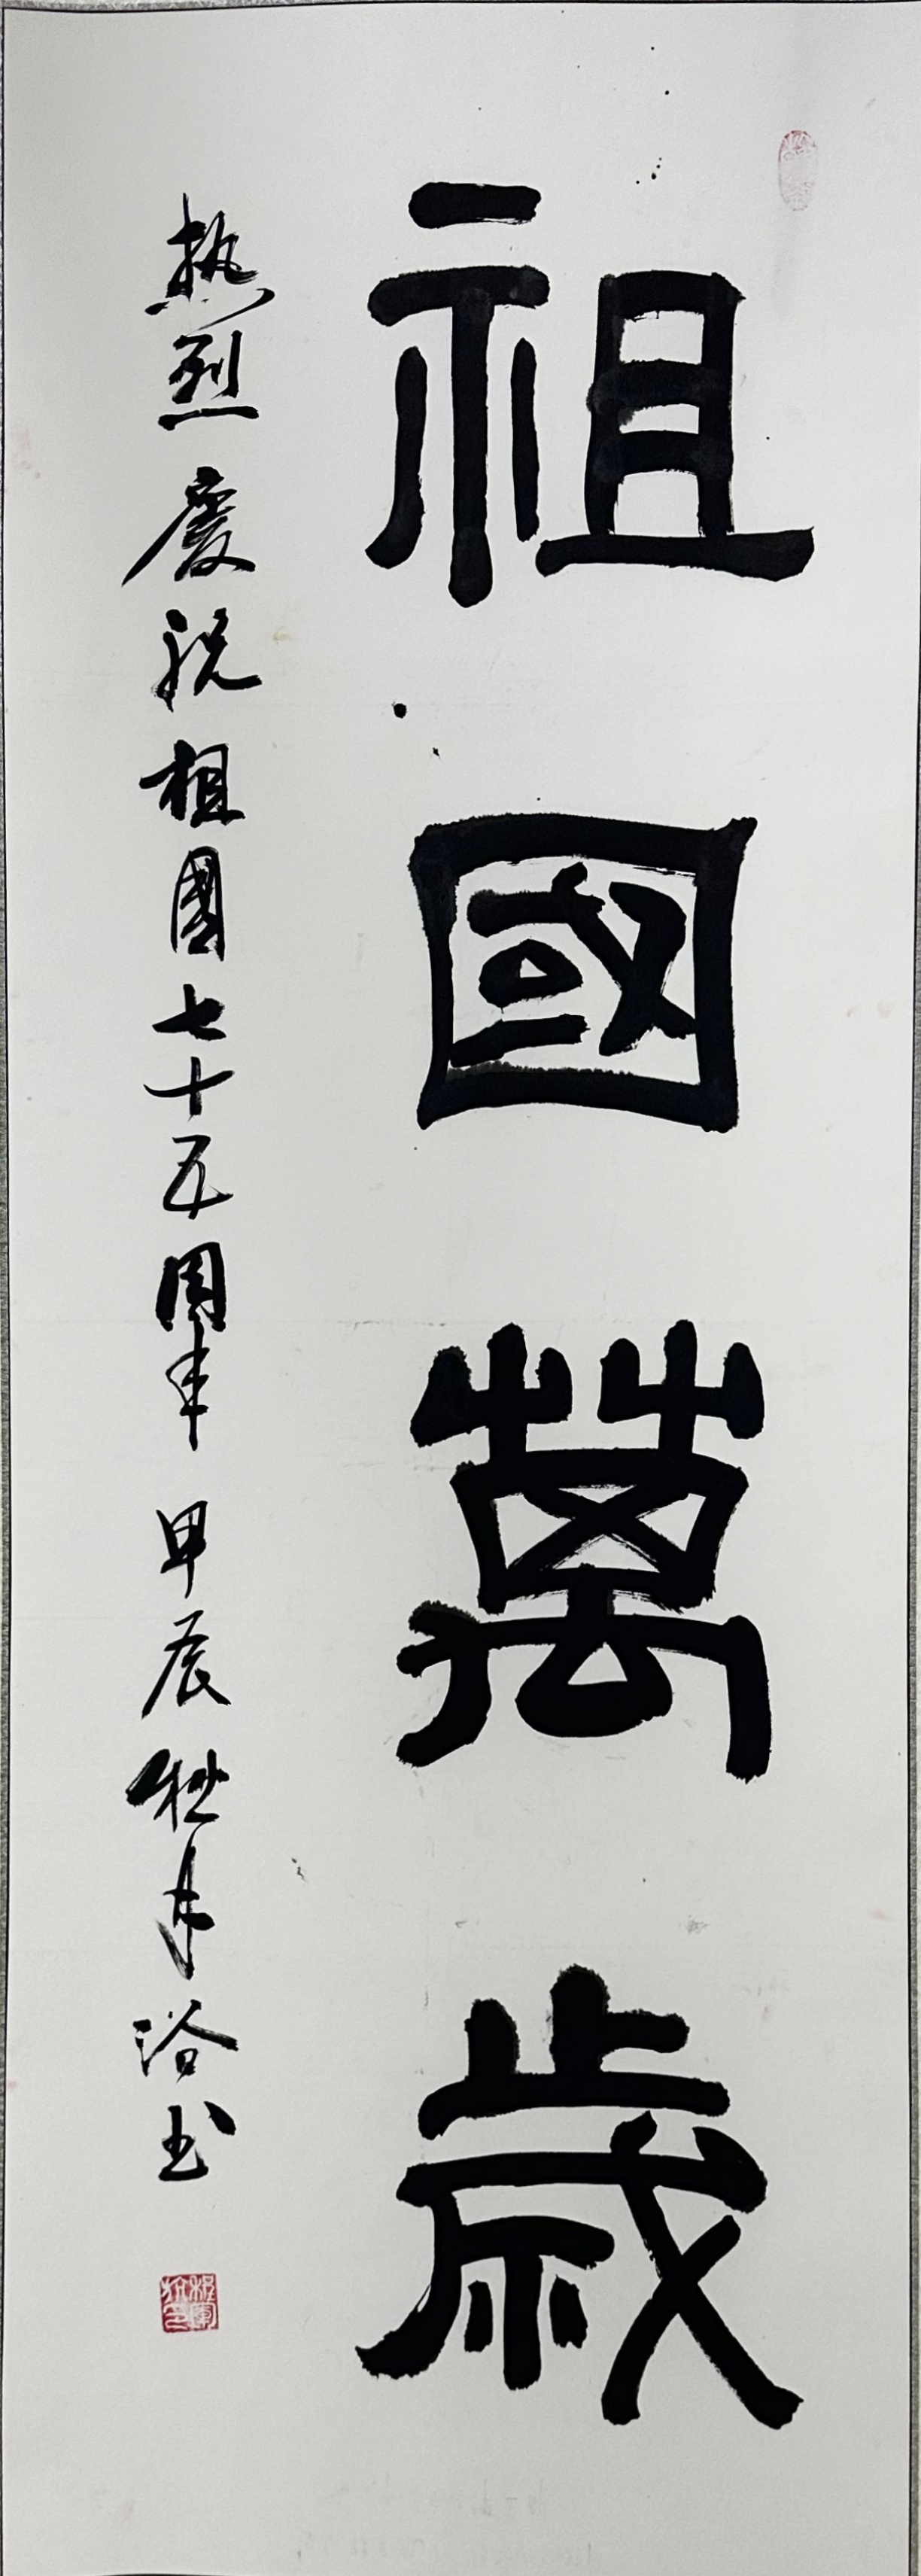 祖國萬歲
热烈慶祝祖國七十五周年 甲辰秋月浴书